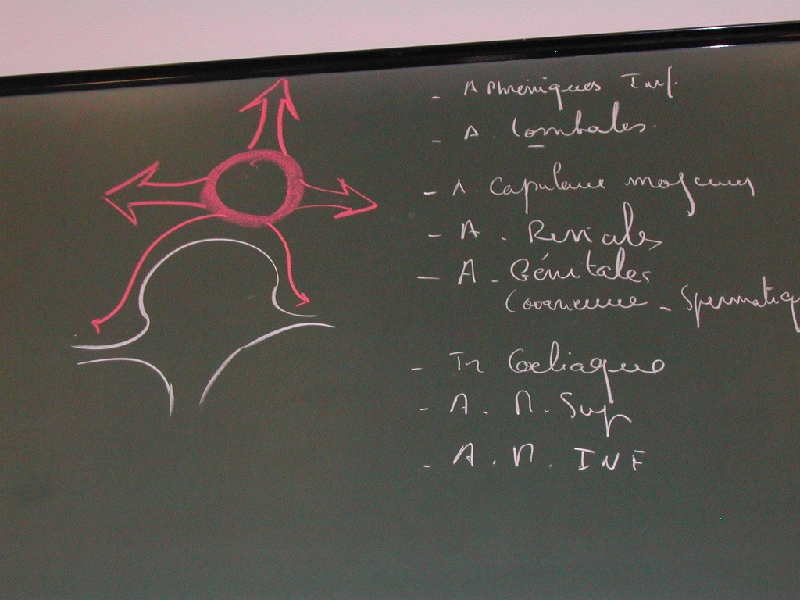 - A Phréniques Inf.
- A. Lombales
- A Capsulaire moyennes
- A. Rénales
- A. Génitales
Ovarienne - Spermatiq
- Tr Coeliaque
- A. M. Sup
- A. M. INF